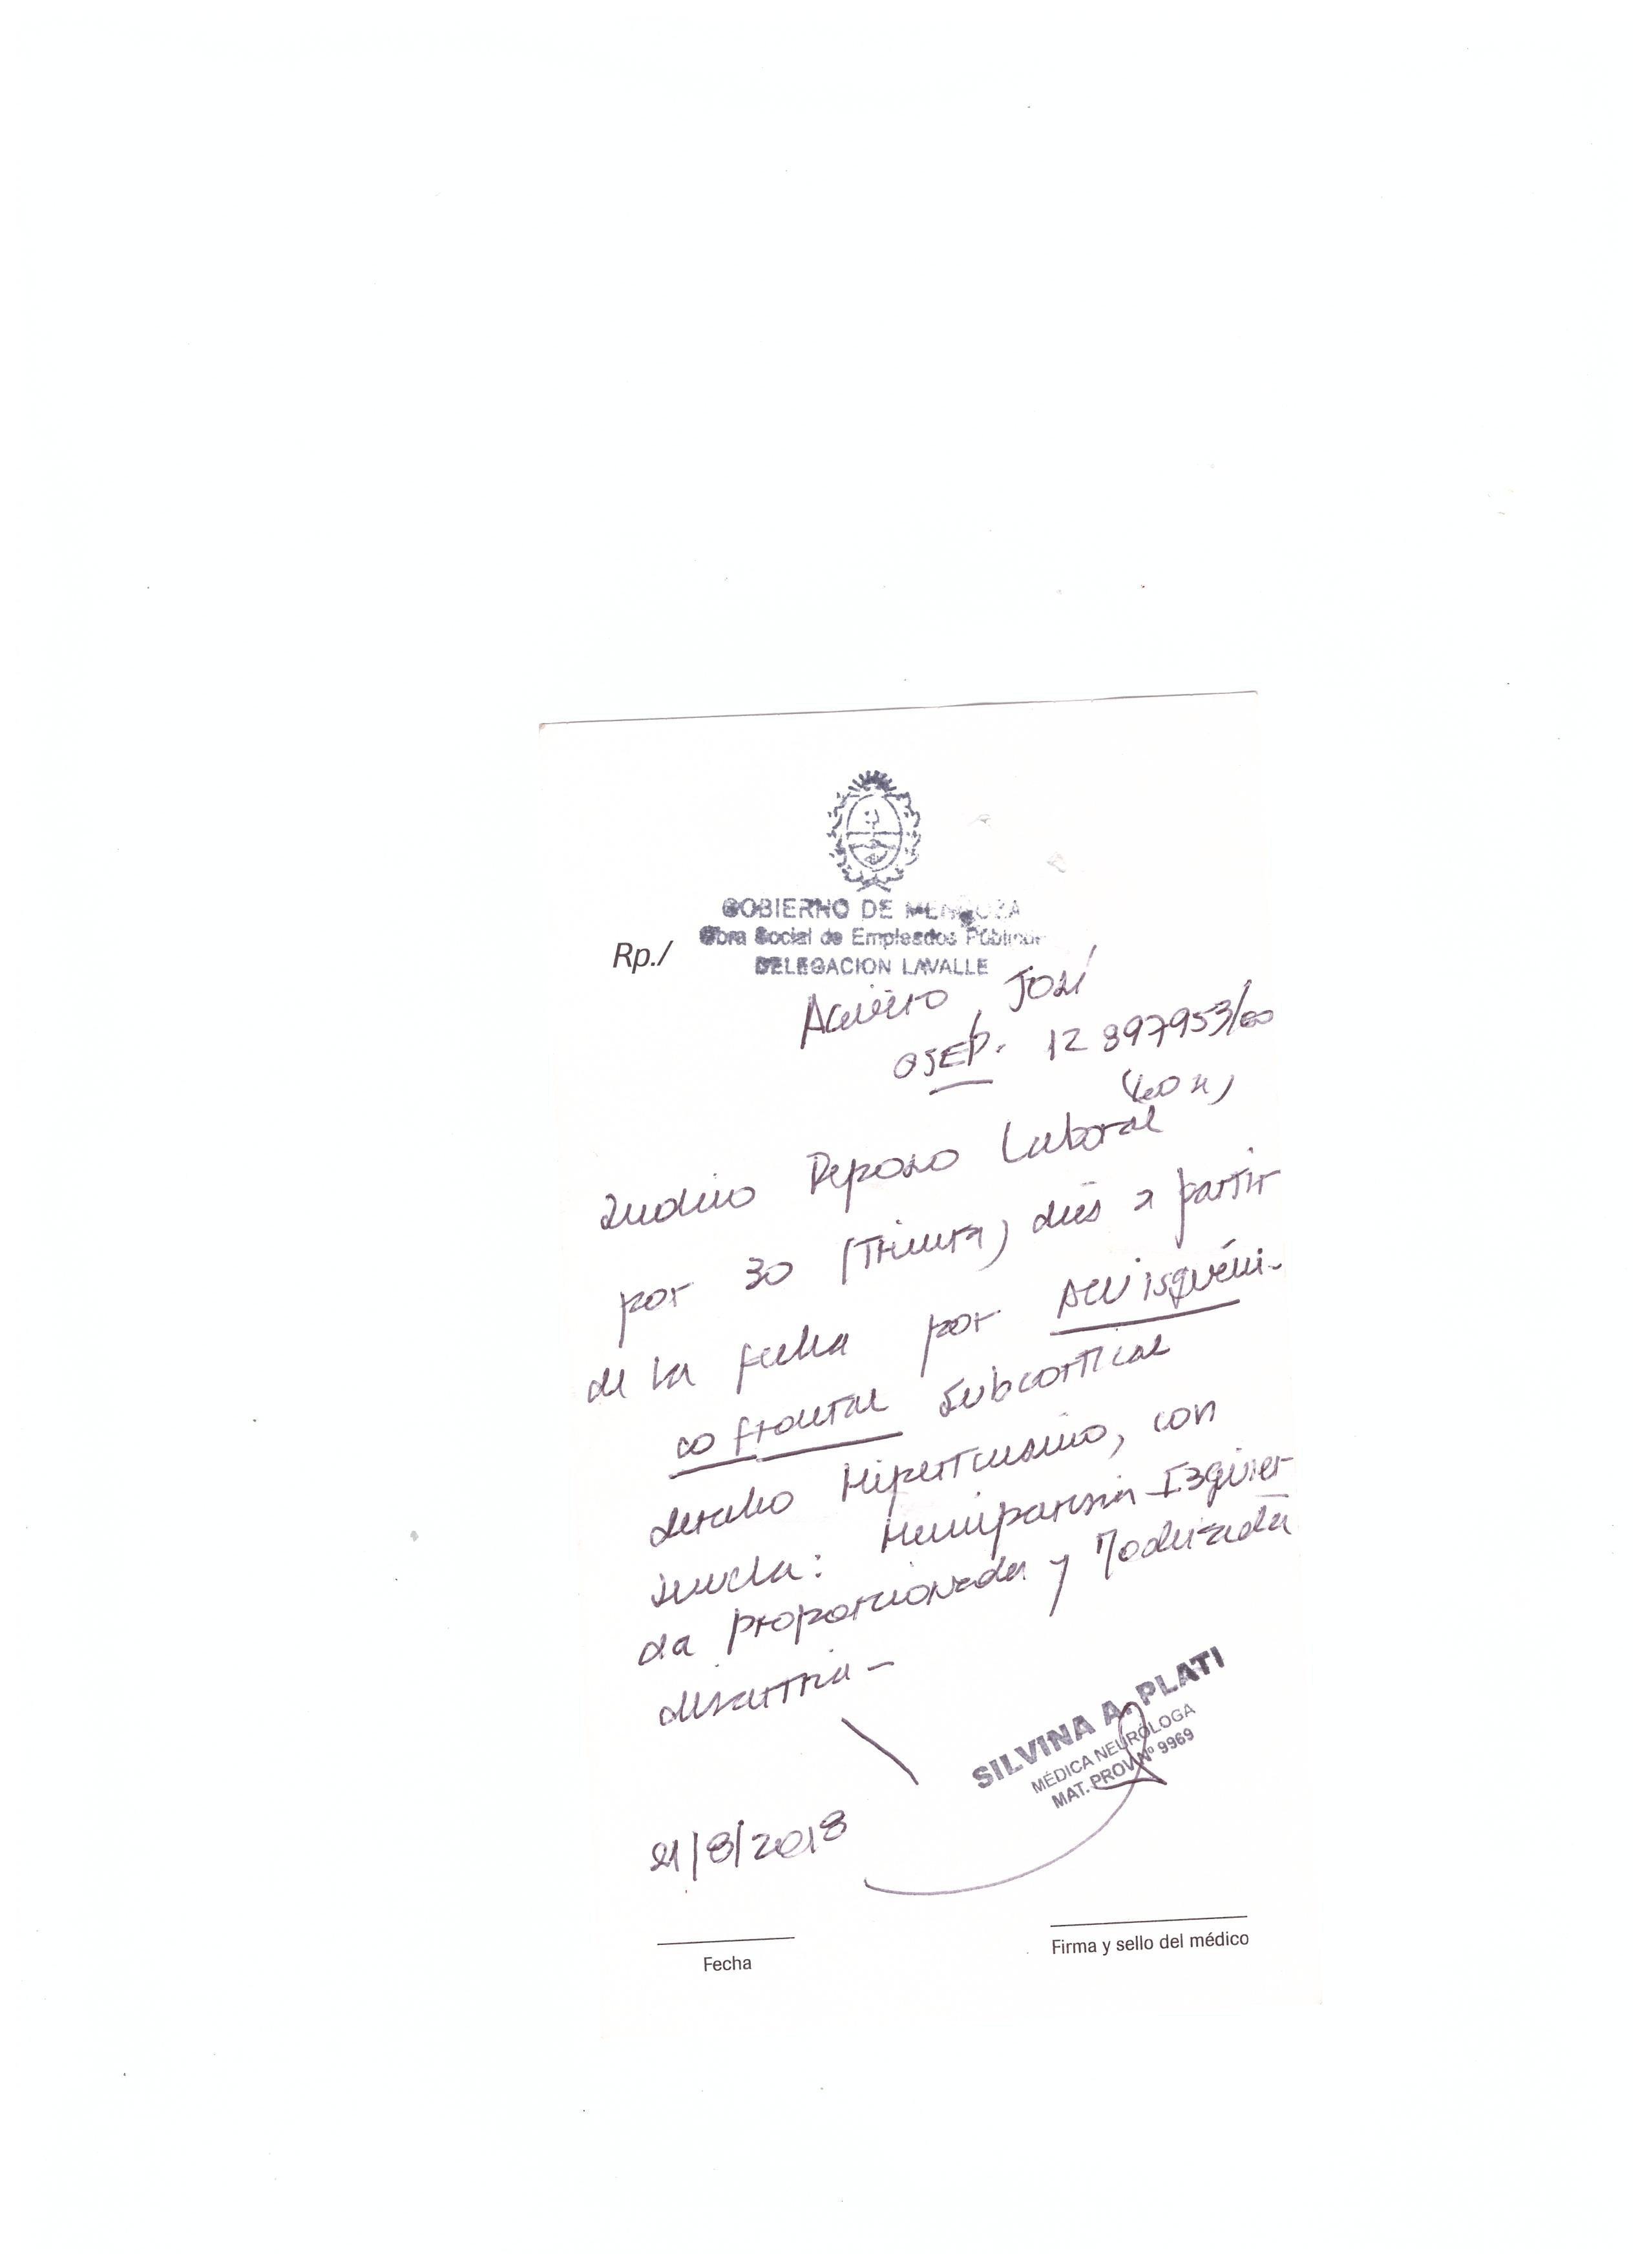 GOBIERNO DE MENDOZA
Obra Social de Empleados Públicos
Rp./
DELEGACION LAVALLE
José
OSEP. 12 897953/00
Indico Reposo Laboral
por 30 (Treinta) días a partir
de la fecha por ACV isquémi-
co frontal subcortical
derecho Hipertensivo, con
secuela: Hemiparesia Izquier-
da proporcionada y Moderada
disartria -
SILVINA A. PLATI
MÉDICA NEURÓLOGA
MAT. PROV. Nº 9969
21/8/2018
Fecha
Firma y sello del médico